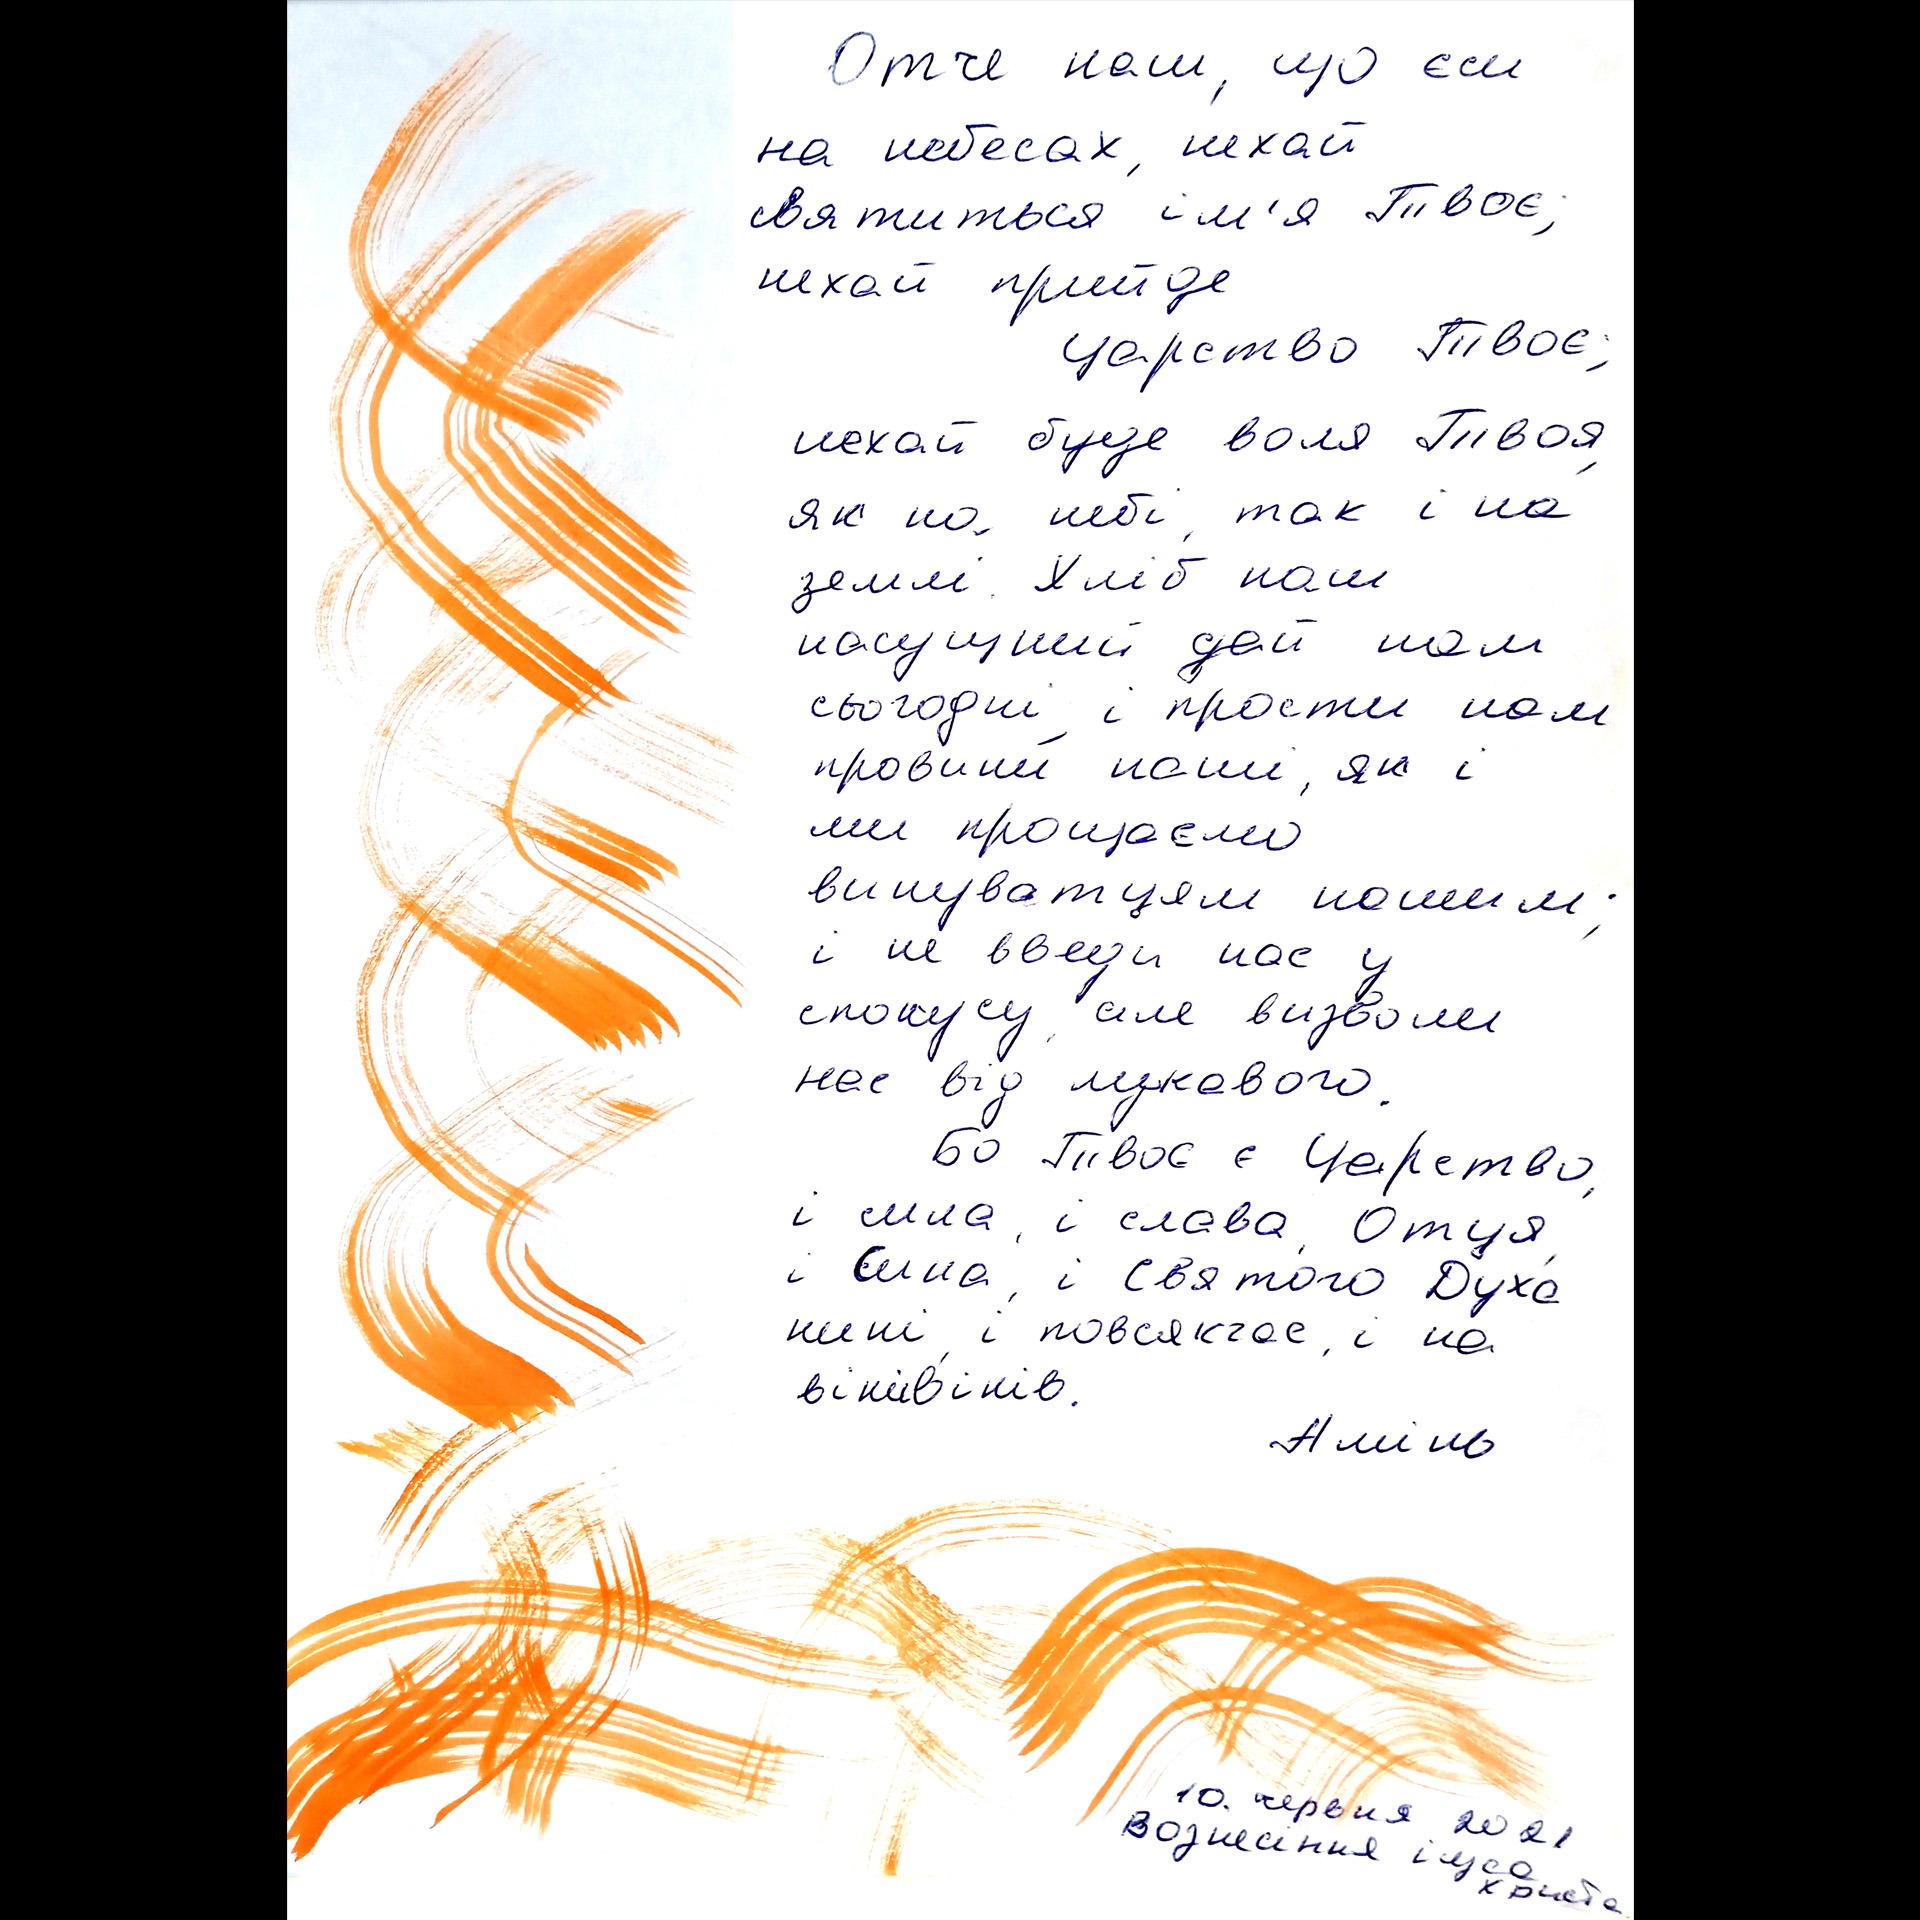 Отче наш, що єси
на небесах, нехай
святиться ім'я Твоє;
нехай прийде
Царство Твоє;
нехай буде воля Твоя,
як на небі, так і на
землі. Хліб наш
насущний дай нам
сьогодні, і прости нам
провини наші, як і
ми прощаємо
винуватцям нашим;
і не введи нас у
спокусу, але визволи
нас від лукавого.
Бо Твоє є Царство,
і сила, і слава, Отця,
і Сина, і Святого Духа
нині, і повсякчас, і на
віки віків.
Амінь
10. червня 2021
Вознесіння ісуса
христа